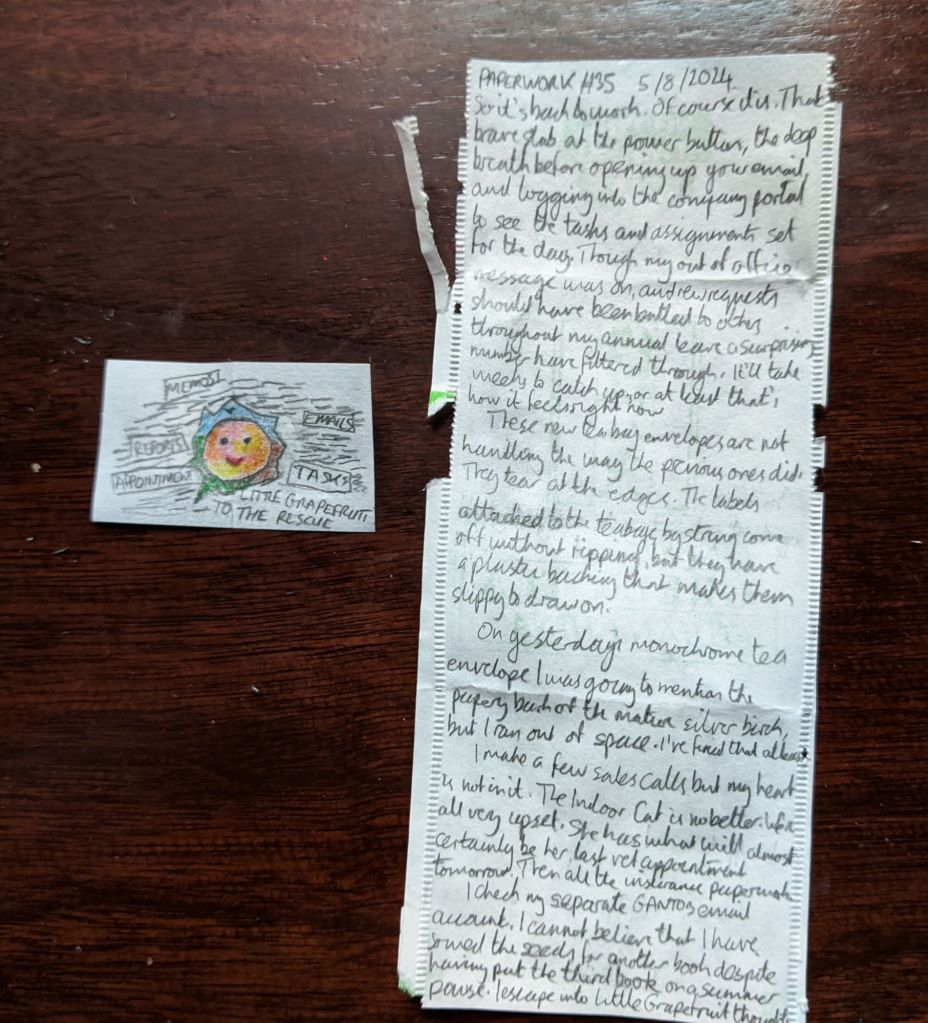 MEMOS
EMAILS
REPORTS
APPOINTMEN
TASKS
LITTLE GRAPEFRUIT
TO THE RESCUE
PAPERWORK #35 5/8/2024
So it's back to work. Of course it is. That
brave stab at the power button, the deep
breath before opening up your email
and logging into the company portal
to see the tasks and assignments set
for the day. Though my out of office
message was on, and new requests
should have been batted to others
throughout my annual leave a surprising
number have filtered through. It'll take
weeks to catch up, or at least that's
how it feels right now
These new teabag envelopes are not
handling the way the previous ones did.
They tear at the edges. The labels
attached to the teabags by string come
off without ripping, but they have
a plastic backing that makes them
slippy to draw on.
On yesterday's monochrome tea
envelope I was going to mention the
papery bark of the mature silver birch,
but I ran out of space. I've fixed that at least
I make a few sales calls but my heart
is not in it. The Indoor Cat is no better. We're
all very upset. She has what will almost
certainly be her last vet appointment
tomorrow. Then all the insurance paperwork
I check my separate GANTOB email
account. I cannot believe that I have
sowed the seeds for another book despite
having put the third book on a summer
pause. I escape into Little Grapefruit thoughts